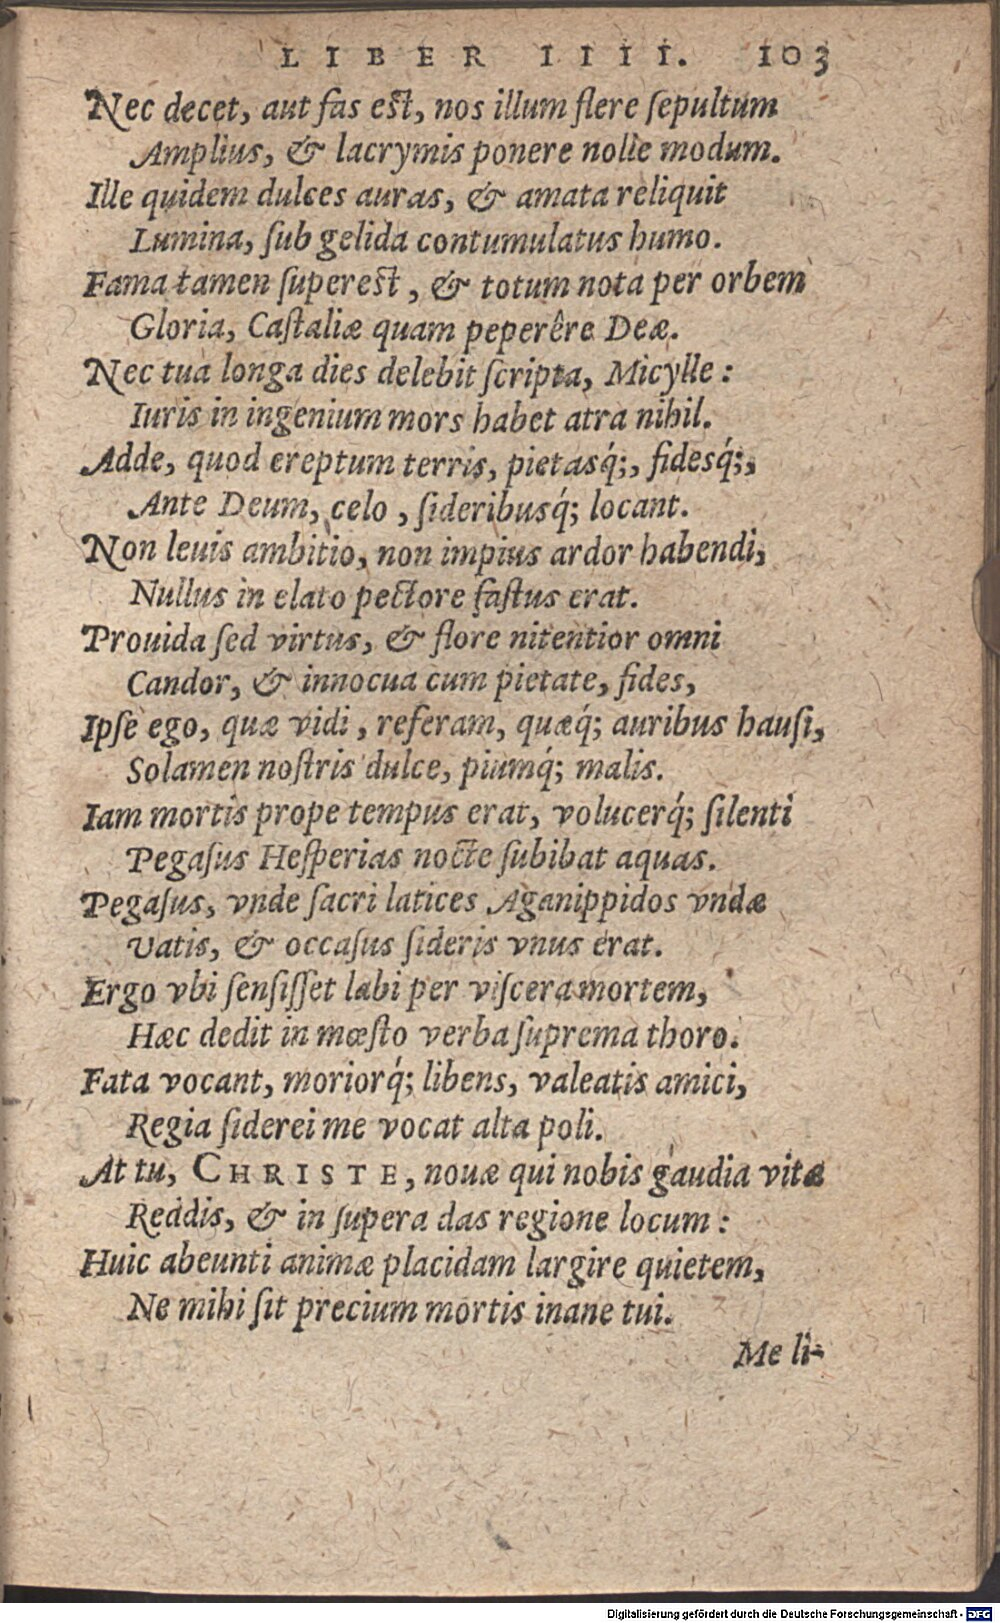 LIBER IIII. 103
Nec decet, aut fas est, nos illum flere ſepultum
Amplius, & lacrymis ponere nolle modum.
Ille quidem dulces auras, & amata reliquit
Lumina, ſub gelida contumulatus humo.
Fama tamen ſuperest, & totum nota per orbem
Gloria, Caſtaliæ quam peperêre Deæ.
Nec tua longa dies delebit ſcripta, Micylle:
Iuris in ingenium mors habet atra nihil.
Adde, quod ereptum terris, pietasq́;, fidesq́;,
Ante Deum, celo, ſideribusq́; locant.
Non leuis ambitio, non impius ardor habendi,
Nullus in elato pectore faſtus erat.
Prouida ſed virtus, & flore nitentior omni
Candor, & innocua cum pietate, fides,
Ipſe ego, quæ vidi, referam, quæq́; auribus hauſi,
Solamen noſtris dulce, piumq́; malis.
Iam mortis prope tempus erat, volucerq́; ſilenti
Pegaſus Heſperias nocte ſubibat aquas.
Pegaſus, vnde ſacri latices Aganippidos vndæ
Vatis, & occaſus ſideris vnus erat.
Ergo vbi ſenſiſſet labi per viſcera mortem,
Hæc dedit in mœſto verba ſuprema thoro.
Fata vocant, moriorq́; libens, valeatis amici,
Regia ſiderei me vocat alta poli.
At tu, CHRISTE, nouæ qui nobis gaudia vitæ
Reddis, & in ſupera das regione locum:
Huic abeunti animæ placidam largire quietem,
Ne mihi ſit precium mortis inane tui.
Me li-
Digitalisierung gefördert durch die Deutsche Forschungsgemeinschaft - DFG